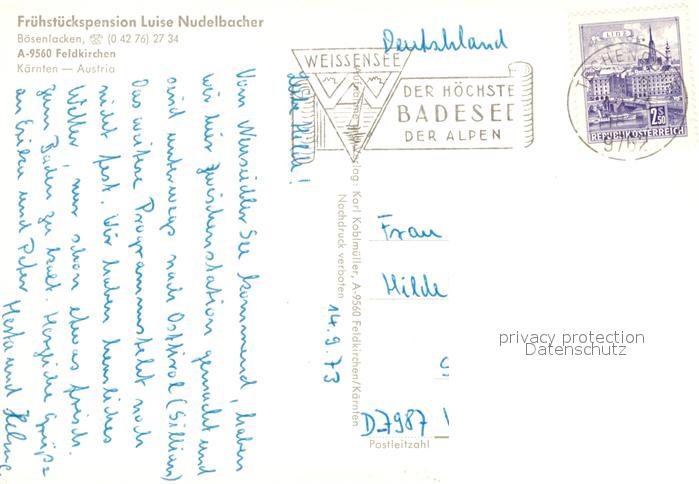 Frühstückspension Luise Nudelbacher
Bösenlacken, ☎ (0 42 76) 27 34
A-9560 Feldkirchen
Kärnten — Austria
Deutschland
WEISSENSEE
DER HÖCHSTE
BADESEE
DER ALPEN
LINZ
2 S 50
REPUBLIK ÖSTERREICH
9762
14.9.73
Liebe Hilde!
Vom Neusiedler See kommend, haben
wir hier Zwischenstation gemacht und
sind unterwegs nach Osttirol (Sillian)
Das weitere Programm steht noch
nicht fest. Wir haben herrliches
Wetter, nur schon etwas frisch.
Zum Baden zu kalt. Herzliche Grüße
an Erika und Peter
Herta und Helmut
Verlag: Karl Kablmüller, A-9560 Feldkirchen/Kärnten
Nachdruck verboten
Frau
Hilde
D-7987
Postleitzahl
privacy protection
Datenschutz